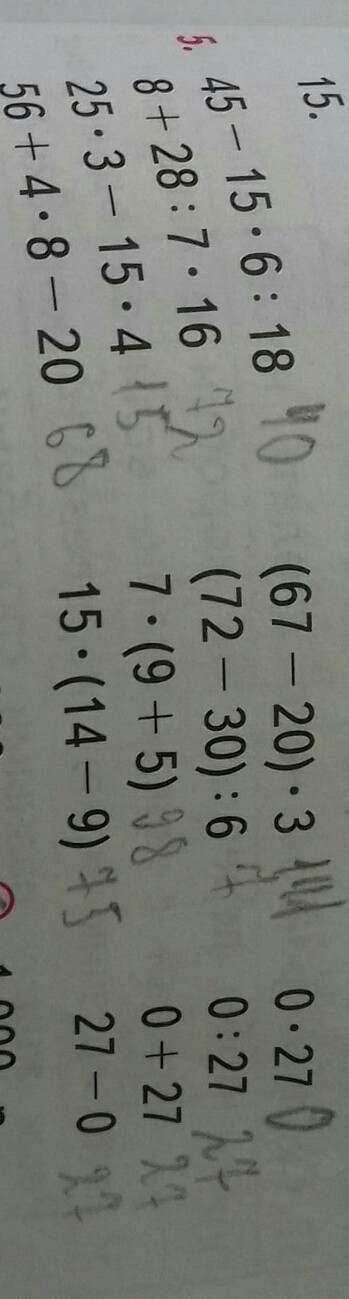 15.
5.
45 − 15 · 6 : 18 40 (67 − 20) · 3 141 0 · 27 0
8 + 28 : 7 · 16 72 (72 − 30) : 6 7 0 : 27 27
25 · 3 − 15 · 4 15 7 · (9 + 5) 98 0 + 27 27
56 + 4 · 8 − 20 68 15 · (14 − 9) 75 27 − 0 27